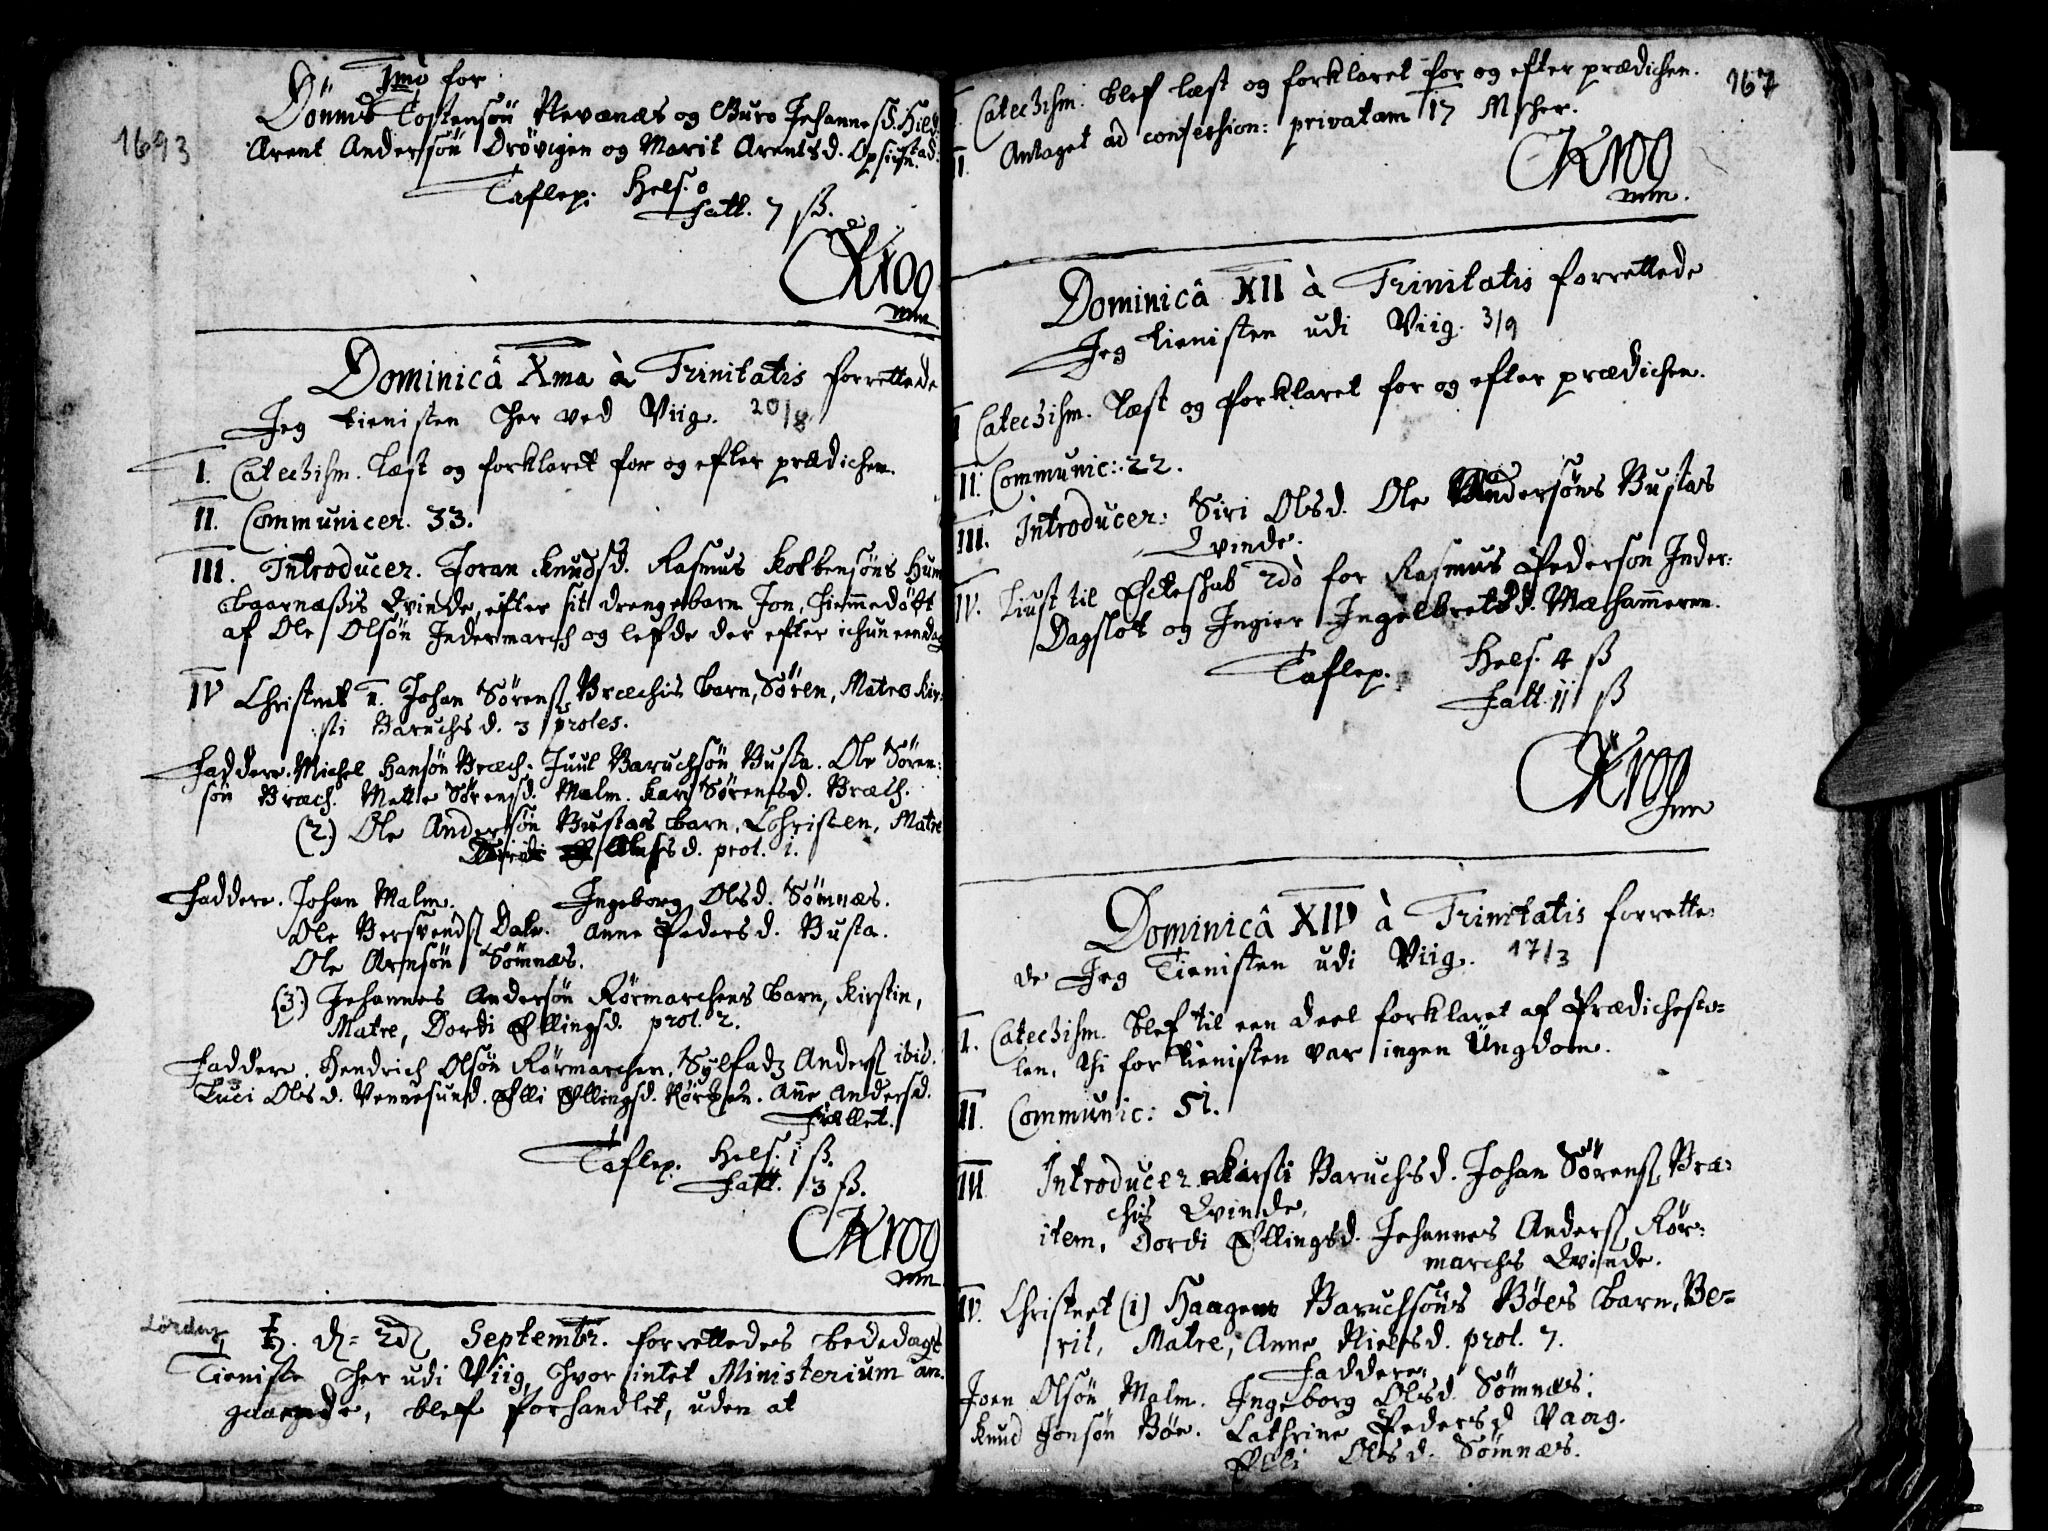 1693
1mo for
Dönnik Tostensön Nevænæs og Guro Johannesd. Hild:
Arent Andersön Drövigen og Marit Arentsd. Opsictstad.
Taflep. Hels. 0
Fatt. 7 ß.
CKrog
mm.
Dominicâ Xma à Trinitatis forrettede
Jeg tienisten her ved Viig. 20/8
I. Catechism. læst og forklaret for og efter prædichen.
II. Communicer. 33.
III. Introducer. Joran Knudsd. Rasmus Kolbensöns Hum
baarnæßis Qvinde, efter sit drengebarn Jon, hiemmedöbt
af Ole Olsön Indermarch og lefde der efter ichun een dag
IV Christnet 1. Johan Sörens. Bræchis barn, Sören, Matre Kir:
sti Baruchsd. 3 proles.
Faddere. Michel Hansön Bræch. Juul Baruchsön Busta. Ole Sören:
sön Bræch. Mette Sörensd. Malm. Kari Sörensd. Bræch.
(2.) Ole Andersön Bustas barn, Christen, Matre
Olesd. prol. 1.
Faddere. Johan Malm. Ingeborg Olsd. Sömnæs.
Ole Bersvends. Dale. Anne Pedersd. Busta.
Ole Arnsön Sömnæs.
(3.) Johannes Andersön Rörmarchens barn, Kirstin,
Matre, Dordi Ellingsd. prol. 2.
Faddere. Hendrich Olsön Rörmarchen, Sylfadz Anders. ibid.
Luci Olsd. Vennesund. Elli Ellingsd. Röröen. Anne Andersd.
Fiællet.
Taflep. Hels. 1 ß.
Fatt. 3 ß.
CKrog
mm
Lördag
ħ. d: 2d Septembr. forrettedes bededags
Tieniste her udi Viig, hvor intet Ministerium an:
gaaende, blef forhandlet, uden at
167
I. Catechism. blef læst og forklaret for og efter prædichen.
II. Antaget ad confession: privatam 17 Mscher.
CKrog
mm.
Dominicâ XII à Trinitatis forrettede
Jeg tienisten udi Viig. 3/9
I Catechism. læst og forklaret for og efter prædichen.
II. Communic: 22.
III. Introducer: Siri Olsd. Ole Andersöns Bustas
Qvinde.
IV. Liust til Ecteskab 2dò for Rasmus Pederson Inder:
Dagslot og Ingier Ingelbretsd. Mælhammeren.
Taflep. Hels. 4 ß
Fatt. 11 ß
CKrog
mm
Dominicâ XIV à Trinitatis forrette:
de Jeg Tienisten udi Viig. 17/3
I. Catechism. blef til een deel forklaret af Prædichesto=
len, thi for tienisten var ingen Ungdom.
II. Communic: 51.
III Introducer. Kirsti Baruchsd. Johan Sörens. Bræ:
chis Qvinde,
item, Dordi Ellingsd. Johannes Anders. Rör:
marchs Qvinde.
IV. Christnet (1) Haagen Baruchsöns Böes barn, Be=
rit, Matre, Anne Nielsd. prol. 7.
Faddere.
Joen Olsön Malm. Ingeborg Olsd. Sömnæs.
Knud Jonsön Böe. Cathrine Pedersd Vaag.
Elli Olsd. Sömnæs.